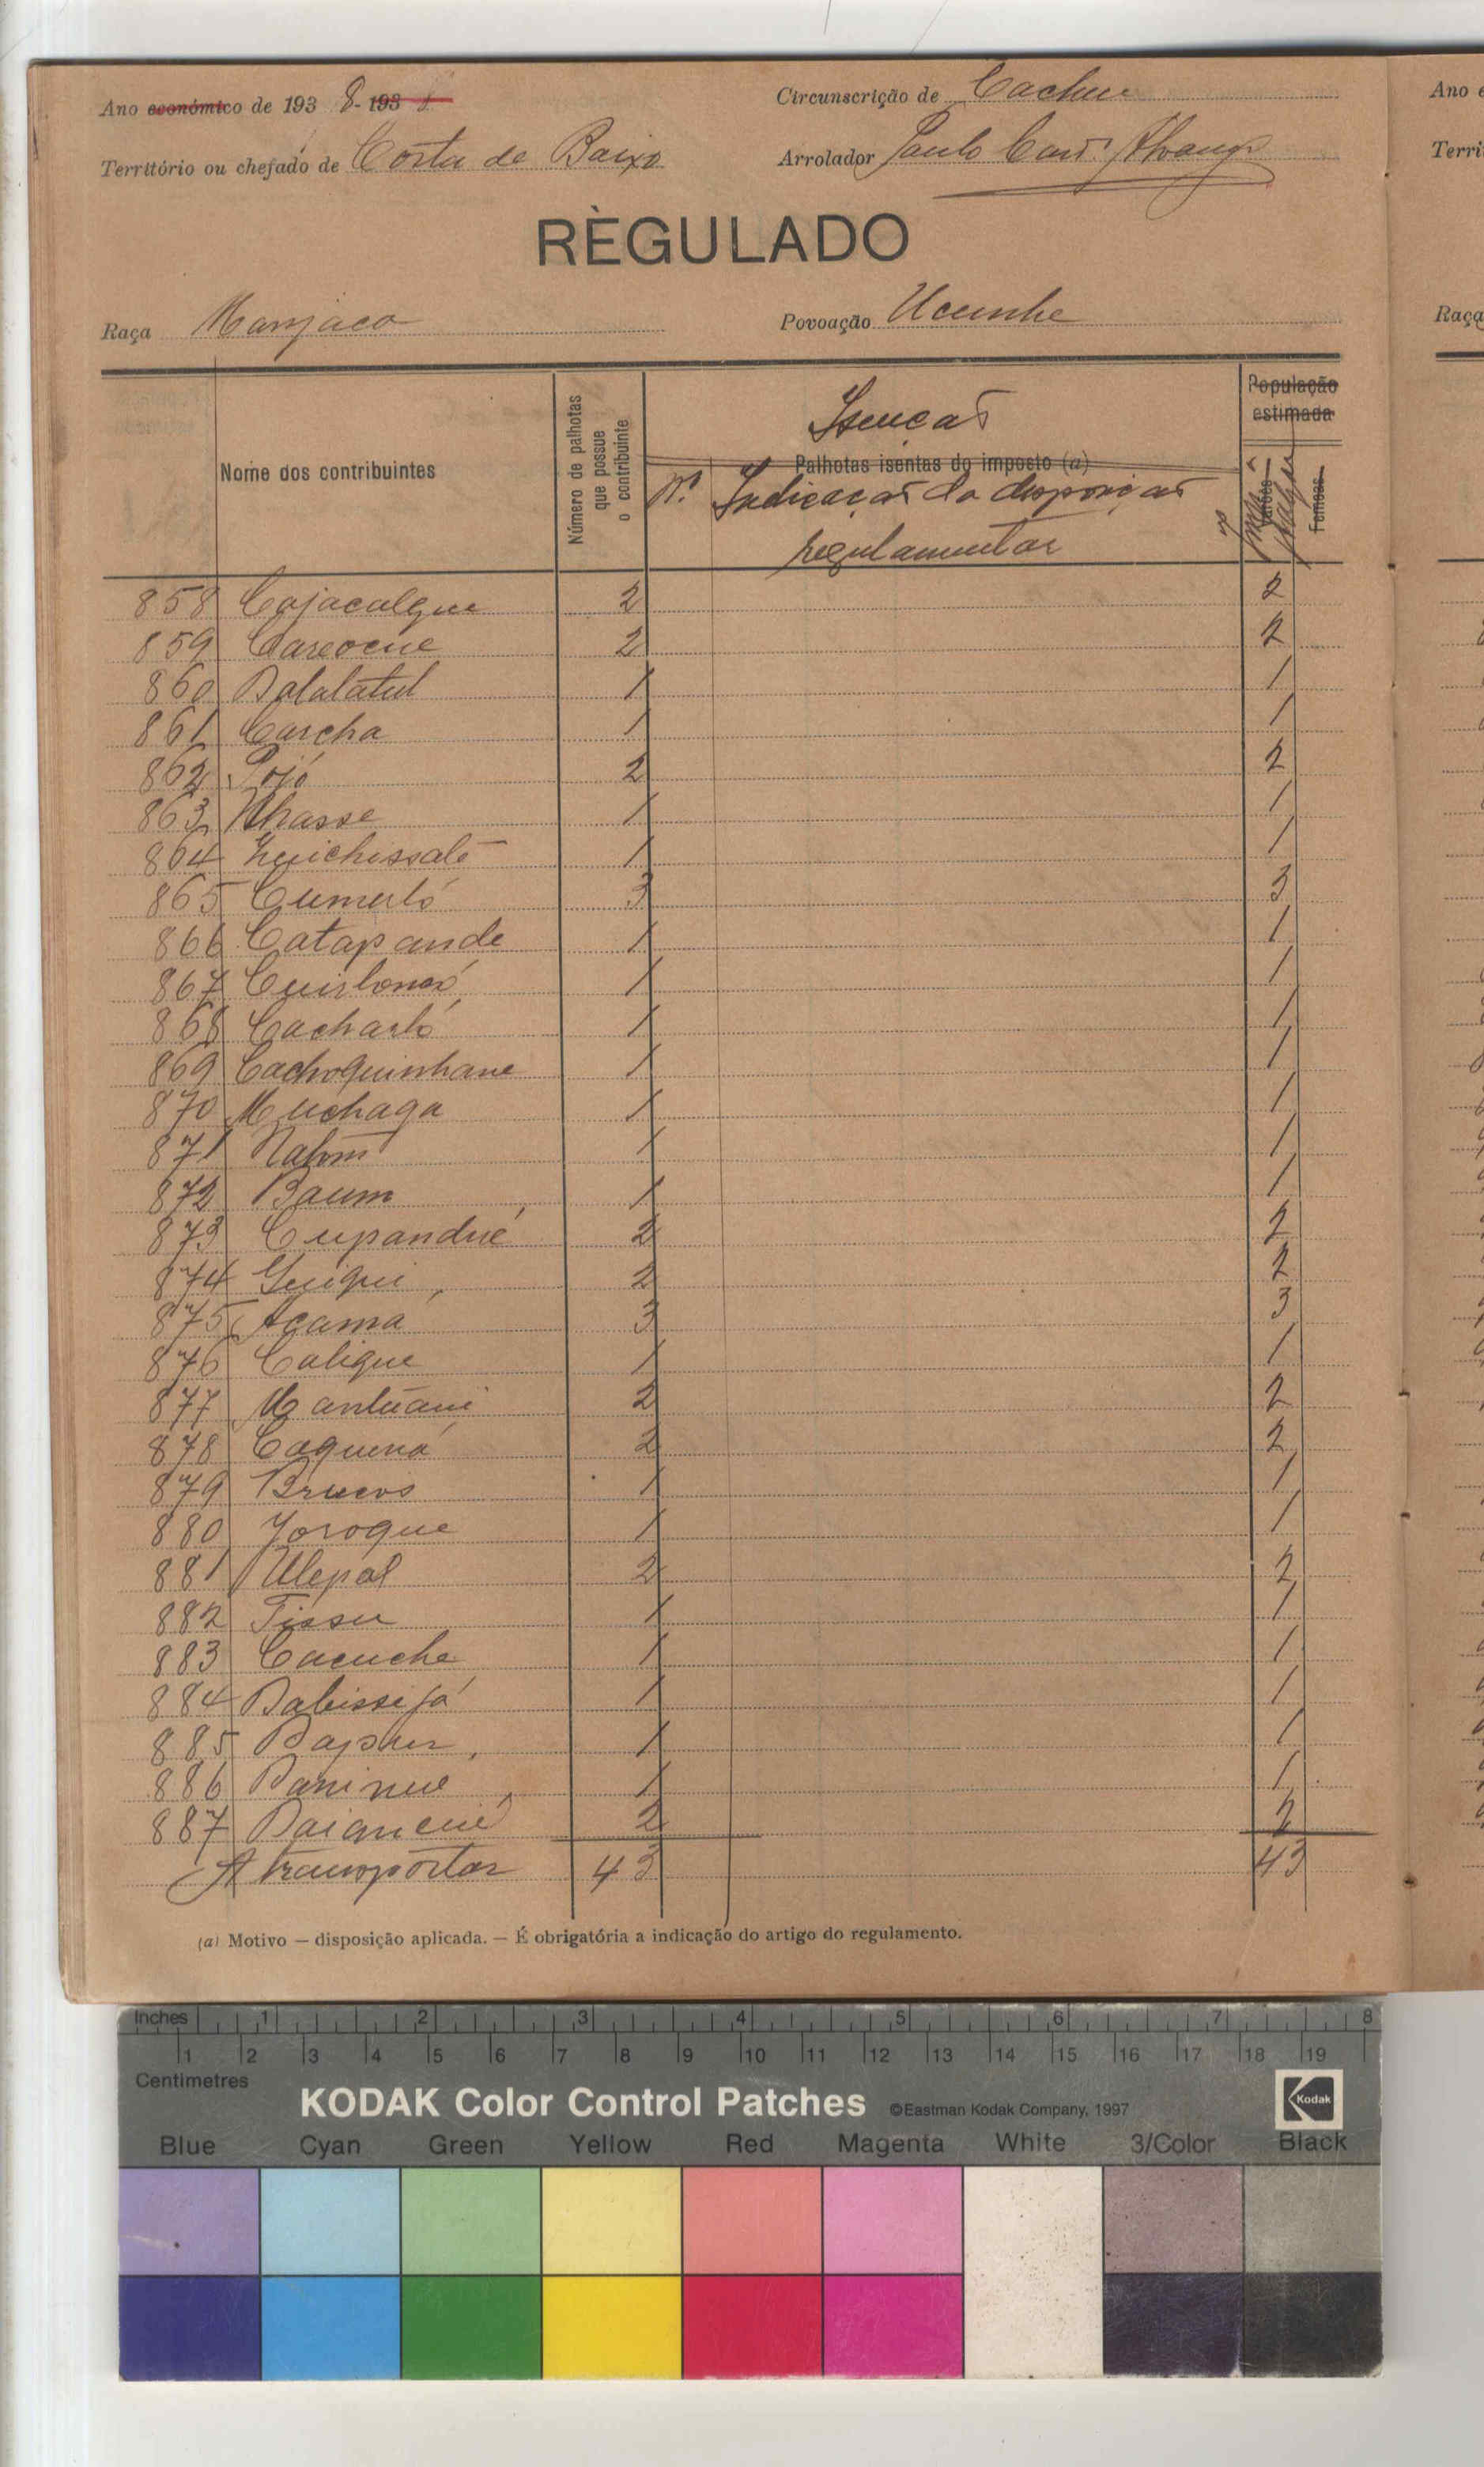 Ano económico de 1938-193
Circunscrição de Cacheu
Território ou chefado de Costa de Baixo
Arrolador Paulo
RÈGULADO
Raça Manjaco
Povoação Ucunhe
Nome dos contribuintes
Número de palhotas que possue o contribuinte
Isenção
Palhotas isentas do imposto (a)
N.º Indicação da disposição
regulamentar
População
estimada
Femeas
858 Cajacalque 2 2
859 Careocue 2 2
860 Balalatul 1 1
861 Carcha 1 1
862 Jojó 2 2
863 Nhasse 1 1
864 1 1
865 Cumerló 3 3
866 Catapande 1 1
867 1 1
868 Cacharló 1 1
869 Cachoquinhane 1 1
870 Muchaga 1 1
871 1 1
872 Baum 1 1
873 Cupandué 2 2
874 Guiqui 2 2
875 Acamá 3 3
876 Calique 1 1
877 Mantuani 2 2
878 Caquená 2 2
879 Brucos 1 1
880 Joroque 1 1
881 Ulepal 2 2
882 Tissu 1 1
883 Cacuche 1 1
884 Babissifá 1 1
885 1 1
886 1 1
887 2 2
A transportar 43 43
(a) Motivo — disposição aplicada. — É obrigatória a indicação do artigo do regulamento.
Ano e
Terri
Raça
Inches 1 2 3 4 5 6 7 8
1 2 3 4 5 6 7 8 9 10 11 12 13 14 15 16 17 18 19
Centimetres
KODAK Color Control Patches ©Eastman Kodak Company, 1997 Kodak
Blue Cyan Green Yellow Red Magenta White 3/Color Black